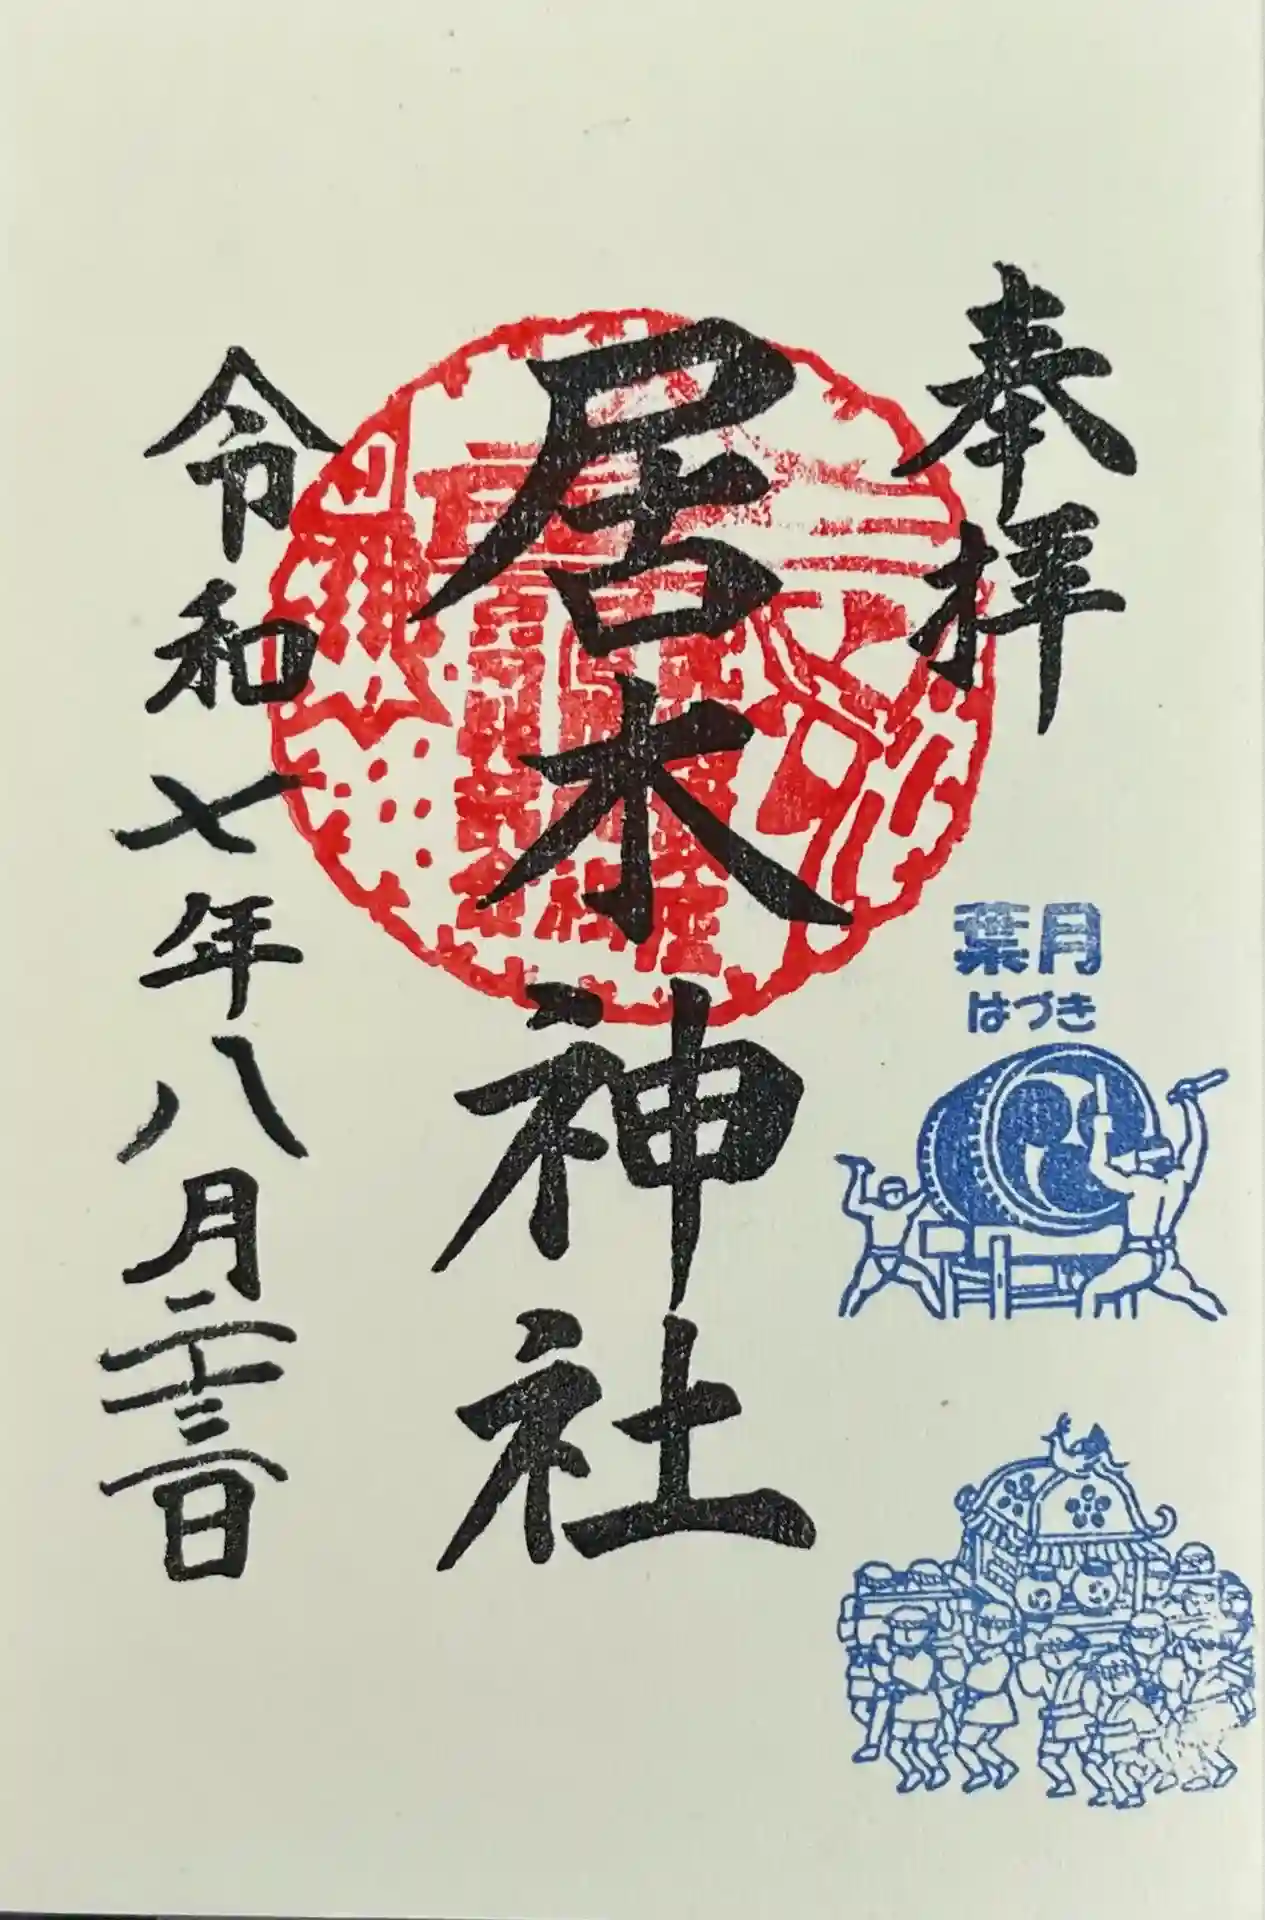 奉拝
葉月
はづき
居木神社
令和七年八月二十三日